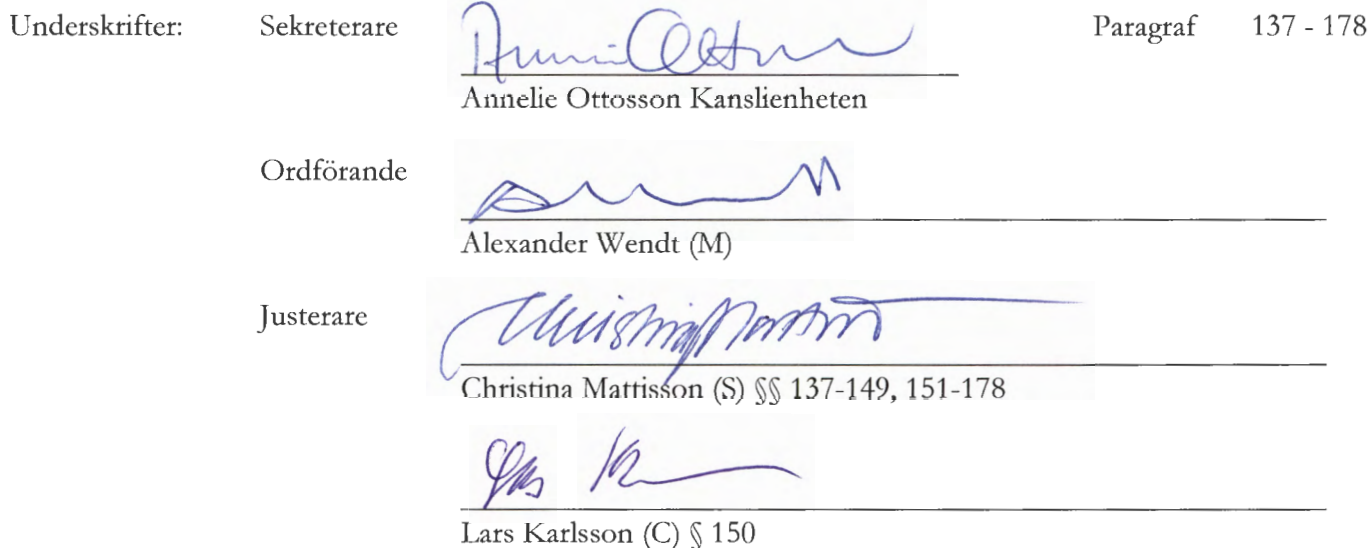 Underskrifter: Sekreterare Paragraf 137 - 178
Annelie Ottosson Kanslienheten
Ordförande
Alexander Wendt (M)
Justerare
Christina Mattisson (S) §§ 137-149, 151-178
Lars Karlsson (C) § 150